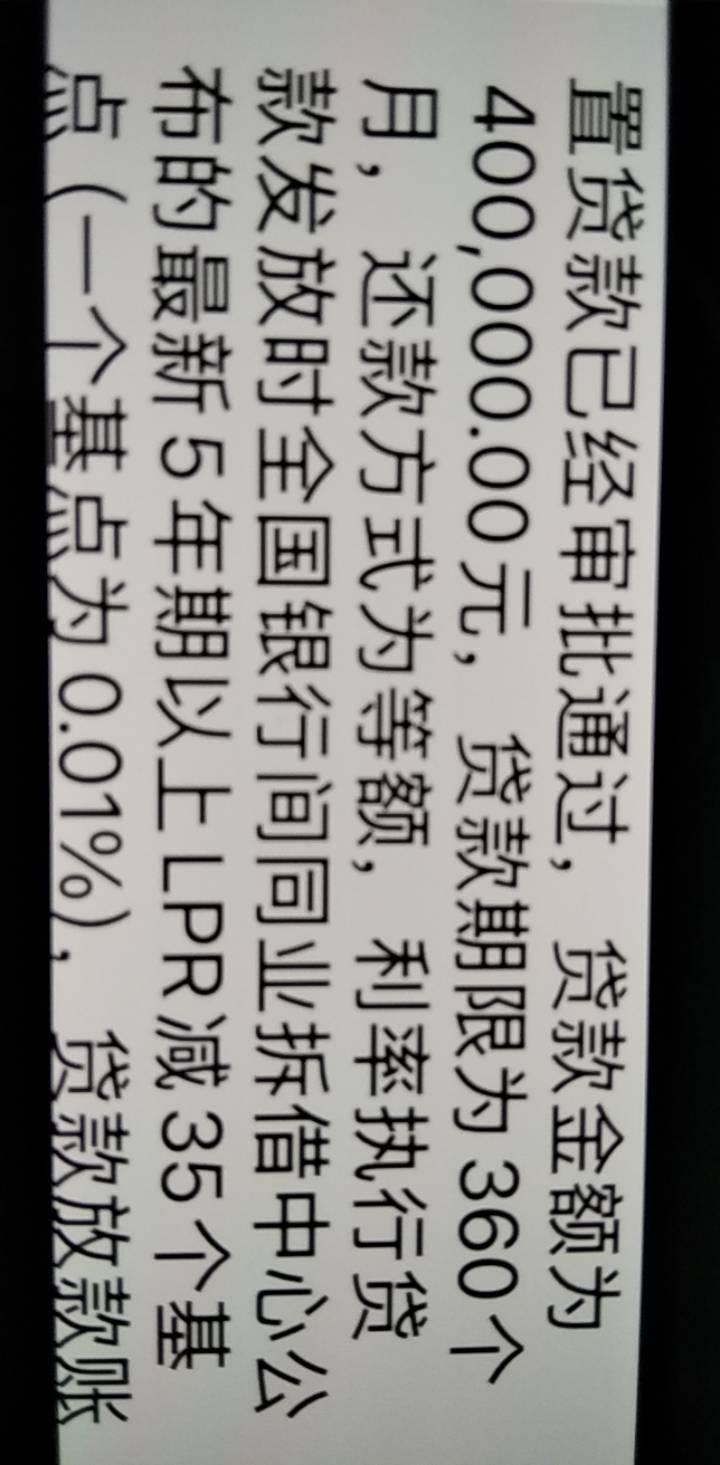 置贷款已经审批通过，贷款金额为
400,000.00 元，贷款期限为 360 个
月，还款方式为等额，利率执行贷
款发放时全国银行间同业拆借中心公
布的最新 5 年期以上 LPR 减 35 个基
点（一个基点为 0.01%），贷款放款账